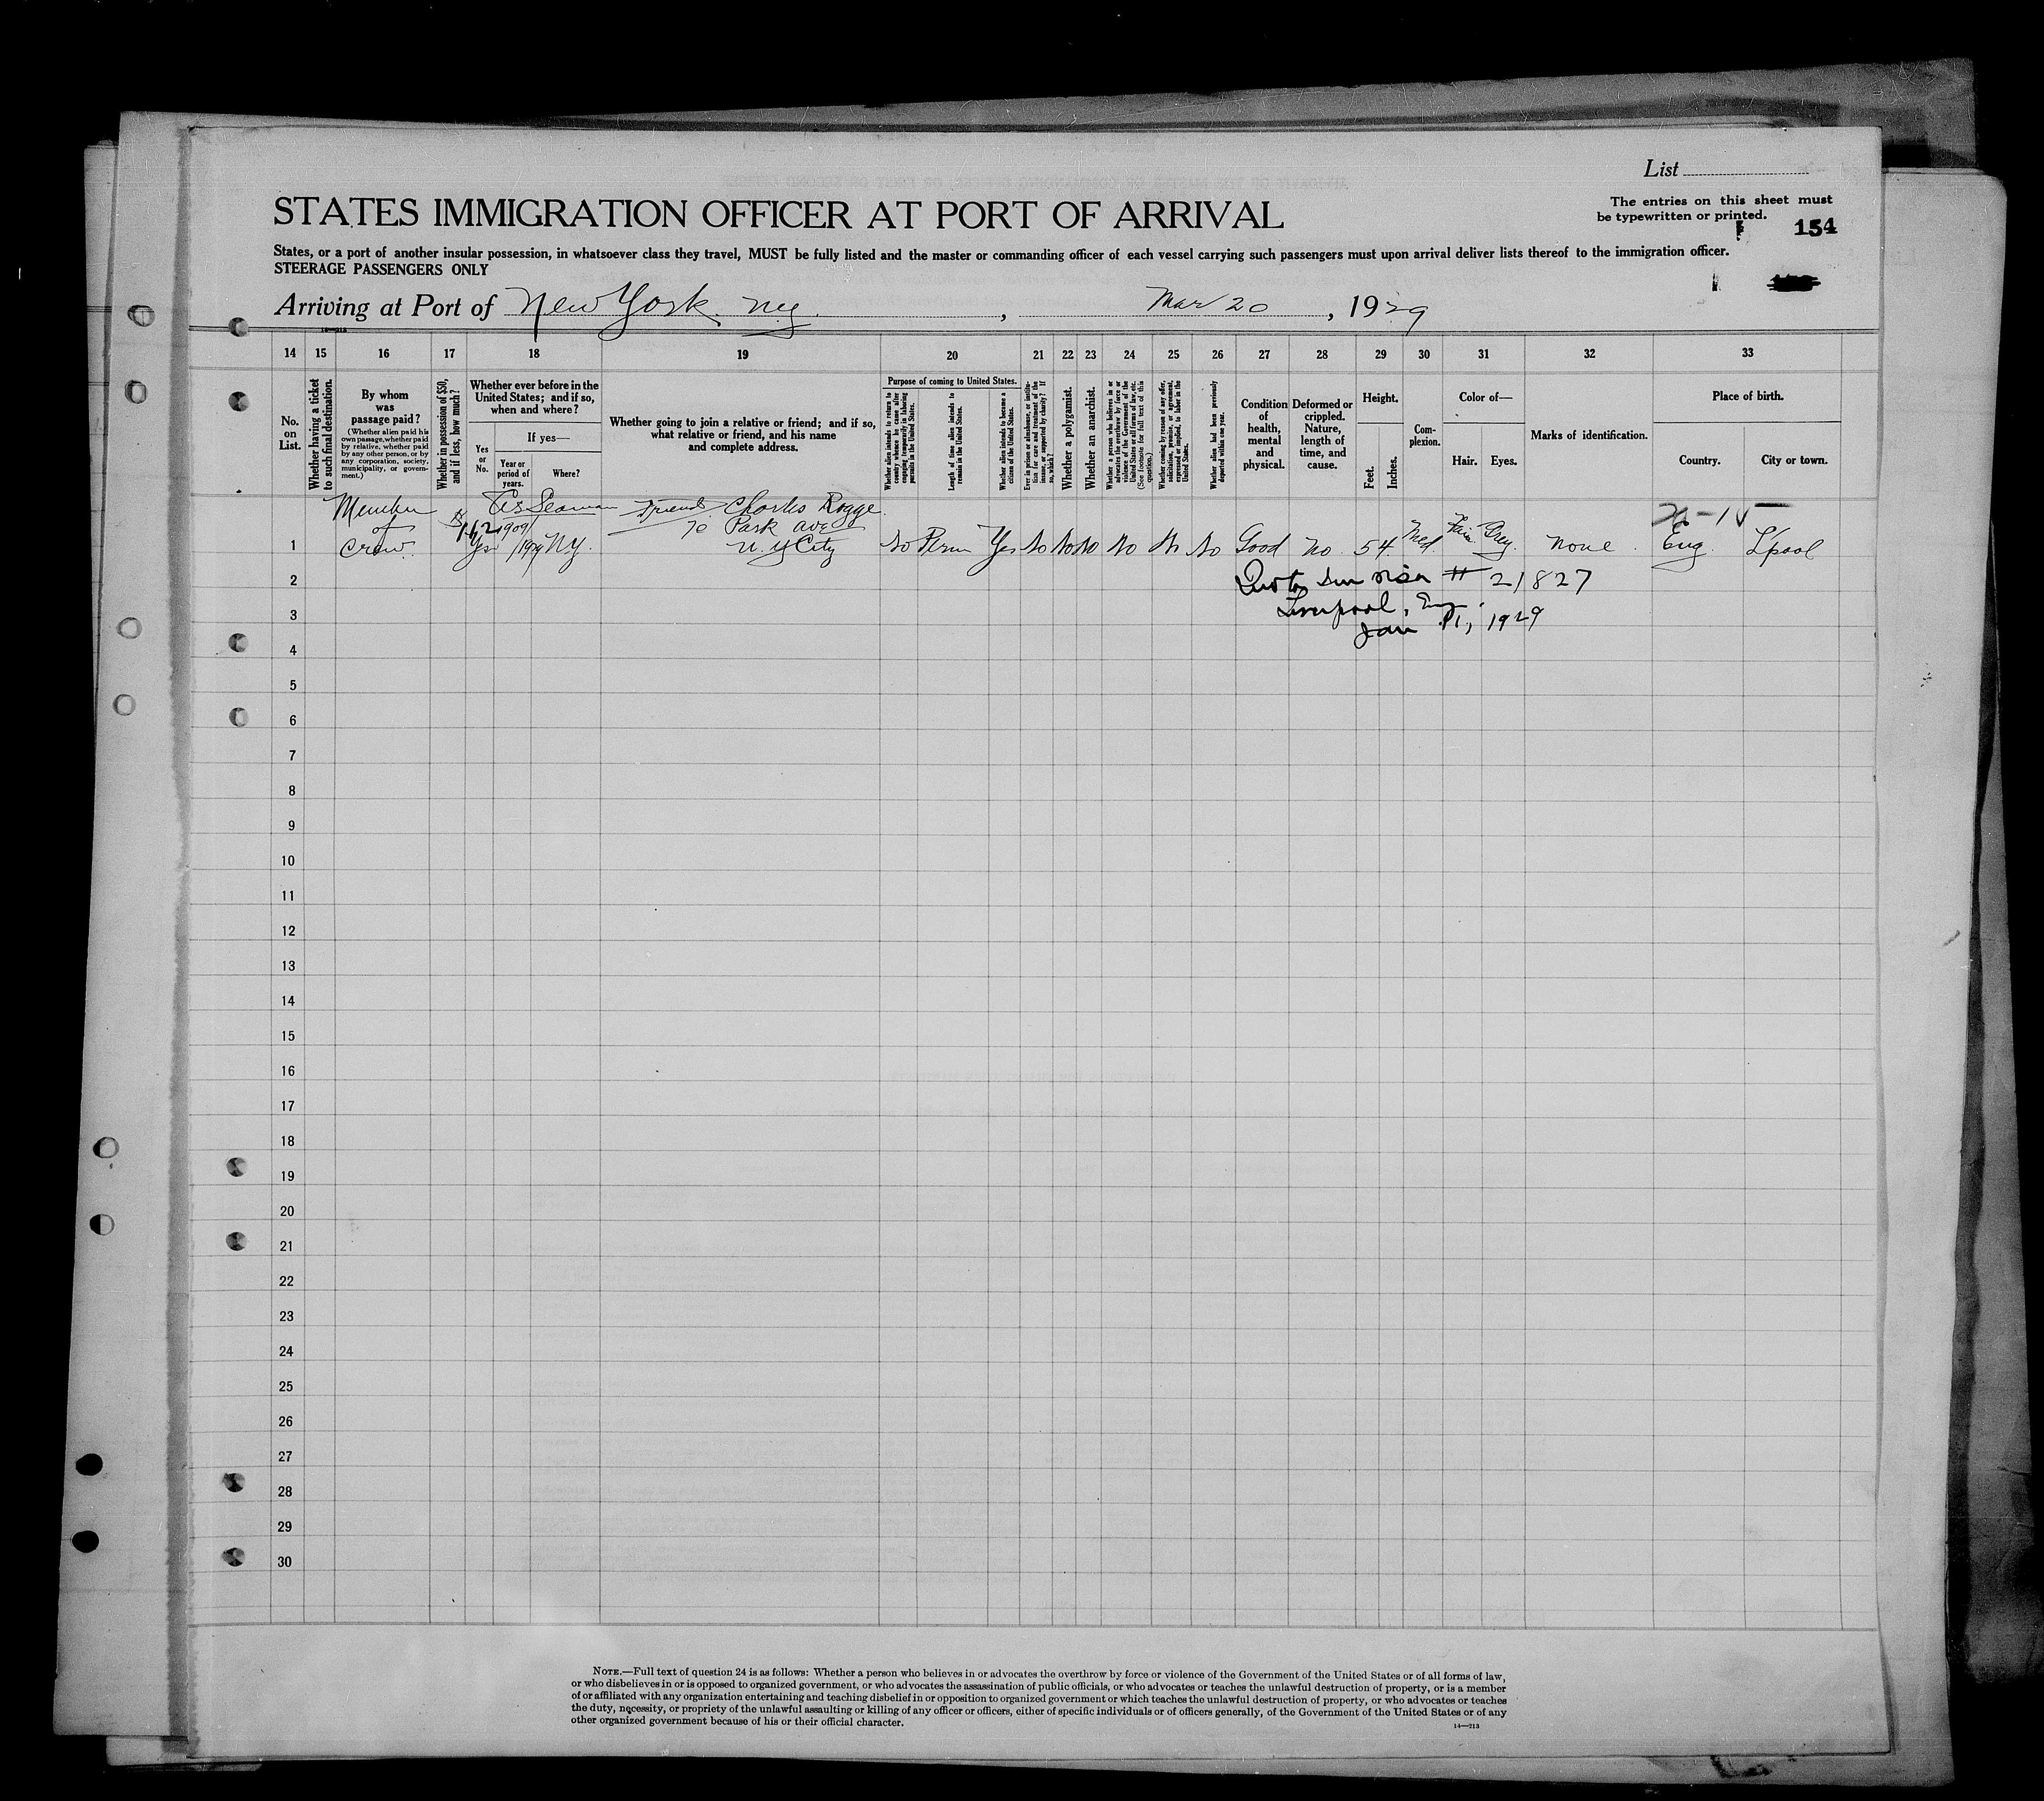 List
The entries on this sheet must
be typewritten or printed.
154
STATES IMMIGRATION OFFICER AT PORT OF ARRIVAL
States, or a port of another insular possession, in whatsoever class they travel, MUST be fully listed and the master or commanding officer of each vessel carrying such passengers must upon arrival deliver lists thereof to the immigration officer.
STEERAGE PASSENGERS ONLY
Arriving at Port of New York NY, Mar 20, 1929
14 15 16 17 18 19 20 21 22 23 24 25 26 27 28 29 30 31 32 33
No. on List.
Whether having a ticket to such final destination.
By whom was passage paid?
(Whether alien paid his own passage, whether paid by relative, whether paid by any other person, or by any corporation, society, municipality, or government.)
Whether in possession of $50, and if less, how much?
Whether ever before in the United States; and if so, when and where?
Yes or No.
If yes—
Year or period of years.
Where?
Whether going to join a relative or friend; and if so, what relative or friend, and his name and complete address.
Purpose of coming to United States.
Whether alien intends to return to country whence he came after engaging temporarily in laboring pursuits in the United States.
Length of time alien intends to remain in the United States.
Whether alien intends to become a citizen of the United States.
Ever in prison or almshouse, or institution for care and treatment of the insane, or supported by charity? If so, which?
Whether a polygamist.
Whether an anarchist.
Whether a person who believes in or advocates the overthrow by force or violence of the Government of the United States or all forms of law, etc. (See footnote for full text of this question.)
Whether coming by reason of any offer, solicitation, promise, or agreement, expressed or implied, to labor in the United States.
Whether alien had been previously deported within one year.
Condition of health, mental and physical.
Deformed or crippled. Nature, length of time, and cause.
Height.
Feet.
Inches.
Com-plexion.
Color of—
Hair.
Eyes.
Marks of identification.
Place of birth.
Country.
City or town.
Member As Seaman Friend Charles Rogge
of 1909 70 Park Ave
1 Crew. Yes 1929 NY. N.Y City No Perm Yes No No No No No No Good No. 5 4 Med. Fair Grey. None. Eng. L'pool
2 Quota Imm visa # 21827
3 Liverpool, Eng.
Jan 1929
4
5
6
7
8
9
10
11
12
13
14
15
16
17
18
19
20
21
22
23
24
25
26
27
28
29
30
NOTE.—Full text of question 24 is as follows: Whether a person who believes in or advocates the overthrow by force or violence of the Government of the United States or of all forms of law,
or who disbelieves in or is opposed to organized government, or who advocates the assassination of public officials, or who advocates or teaches the unlawful destruction of property, or is a member
of or affiliated with any organization entertaining and teaching disbelief in or opposition to organized government or which teaches the unlawful destruction of property, or who advocates or teaches
the duty, necessity, or propriety of the unlawful assaulting or killing of any officer or officers, either of specific individuals or of officers generally, of the Government of the United States or of any
other organized government because of his or their official character.
14—213